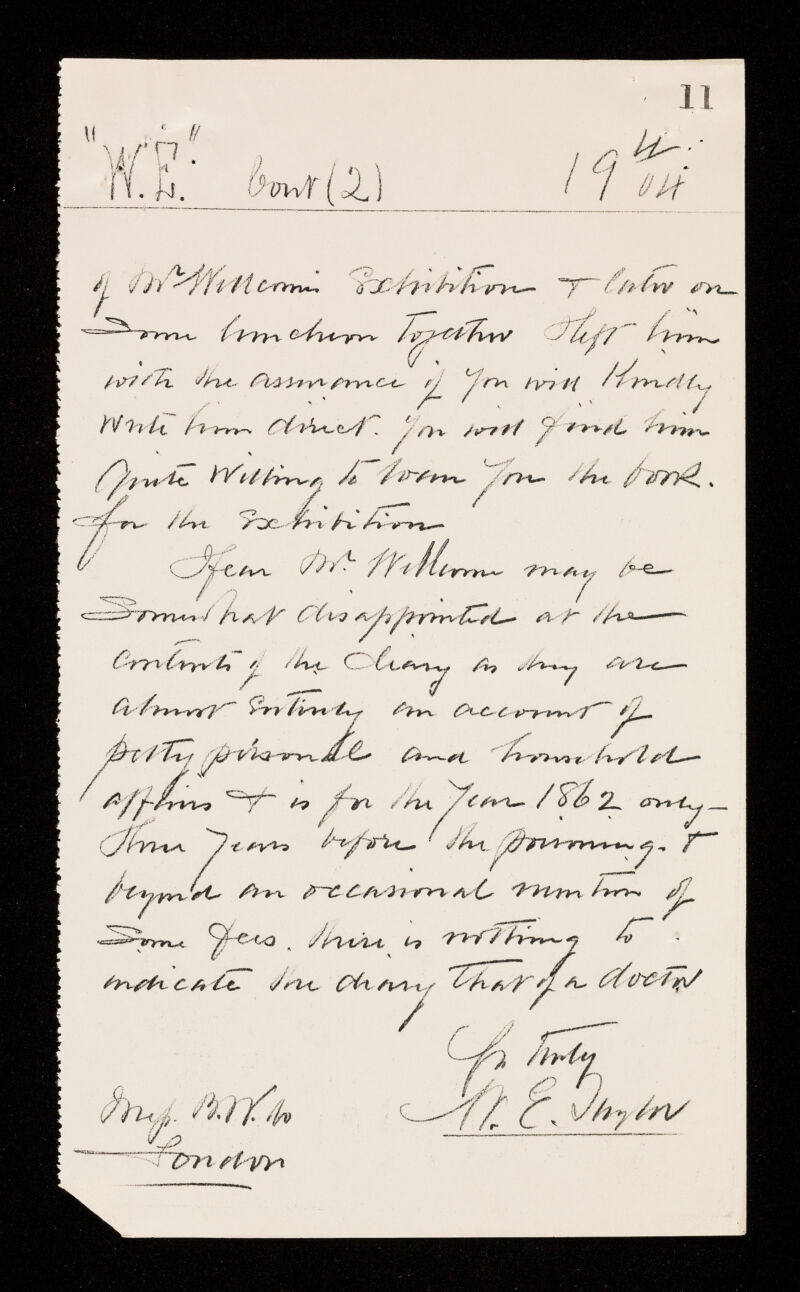 11
"W.E." Cont (2) 19 4/04
of Mr Wellcome's Exhibition & later on
Some luncheon together I left him
with the assurance if you will Kindly
write him direct. you will find him
Quite Willing to loan you the book.
for the Exhibition
I fear Mr. Wellcome may be
Somewhat disappointed at the
contents of the Diary as they are
almost Entirely an account of
petty personal and household
affairs & is for the year 1862 only—
three years before the poisoning. &
beyond an occasional mention of
Some fees. there is nothing to
indicate the diary that of a doctor
Yrs truly
W. E. Taylor
Mess. B.W. &o
London